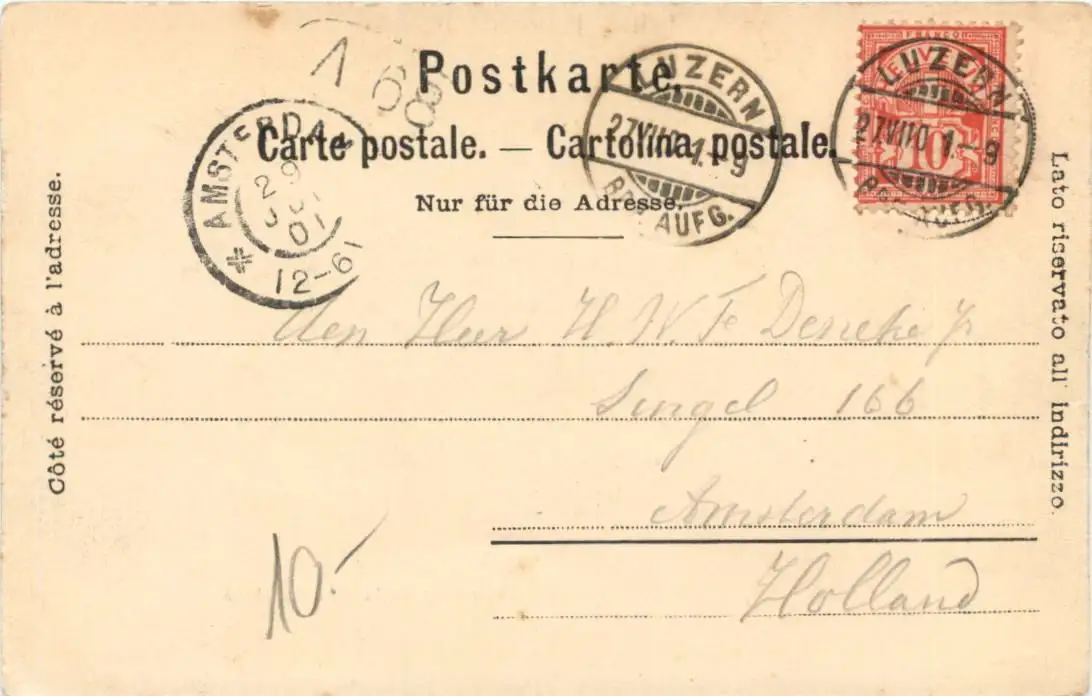 Postkarte.
Carte postale. — Cartolina postale.
Nur für die Adresse.
Côté réservé à l'adresse.
Lato riservato all' indirizzo.
AMSTERDAM
29
01
12-6
LUZERN
1.-9
AUFG.
FRANCO
10
LUZERN
1-9
Den Heer H W F
Singel 166
Amsterdam
Holland
10.-